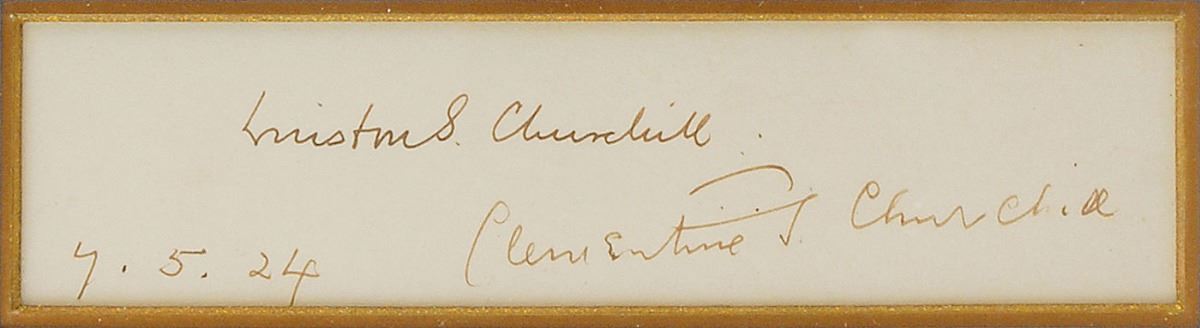 Winston S. Churchill.
Clementine S. Churchill
7. 5. 24